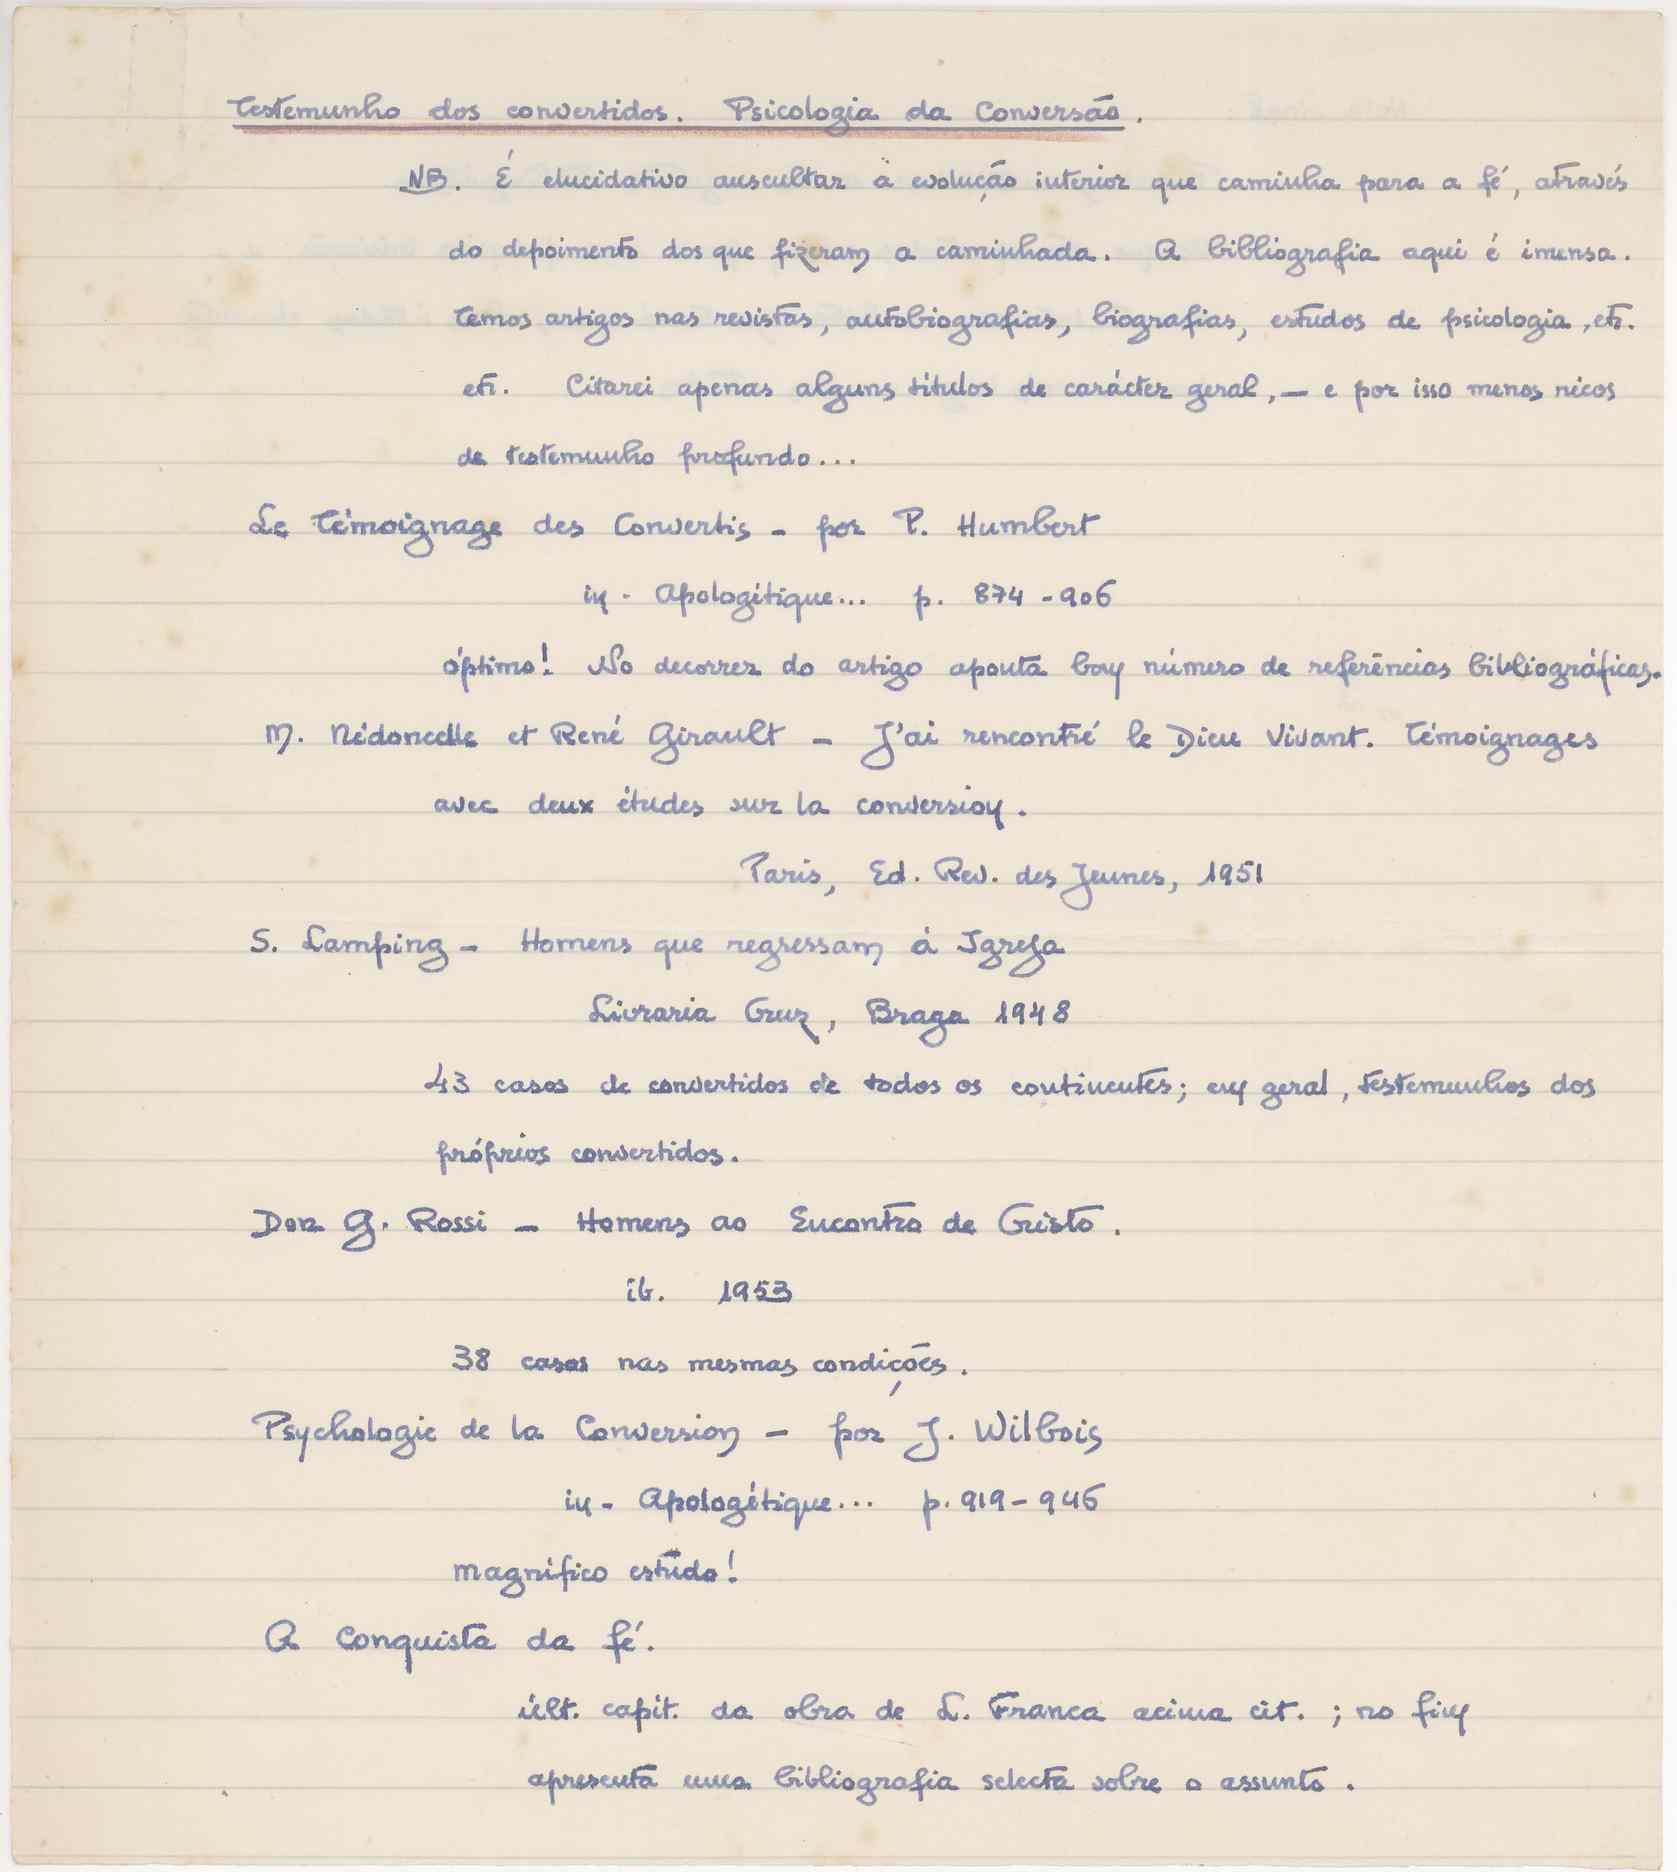 Testemunho dos convertidos. Psicologia da Conversão.
NB. É elucidativo auscultar a evolução interior que caminha para a fé, através
do depoimento dos que fizeram a caminhada. A bibliografia aqui é imensa.
Temos artigos nas revistas, autobiografias, biografias, estudos de psicologia, etc.
etc. Citarei apenas alguns títulos de carácter geral, — e por isso menos ricos
de testemunho profundo...
Le Témoignage des Convertis - por P. Humbert
in - Apologétique... p. 874-906
óptimo! No decorrer do artigo aponta bom número de referências bibliográficas.
M. Nédoncelle et René Girault - J'ai rencontré le Dieu Vivant. Témoignages
avec deux études sur la conversion.
Paris, Ed. Rev. des Jeunes, 1951
S. Lamping - Homens que regressam à Igreja
Livraria Cruz, Braga 1948
43 casos de convertidos de todos os continentes; em geral, testemunhos dos
próprios convertidos.
Don G. Rossi - Homens ao Encontro de Cristo.
ib. 1953
38 casos nas mesmas condições.
Psychologie de la Conversion - por J. Wilbois
in - Apologétique... p. 919-946
magnífico estudo!
A Conquista da fé.
últ. capít. da obra de L. Franca acima cit. ; no fim
apresenta uma bibliografia selecta sobre o assunto.